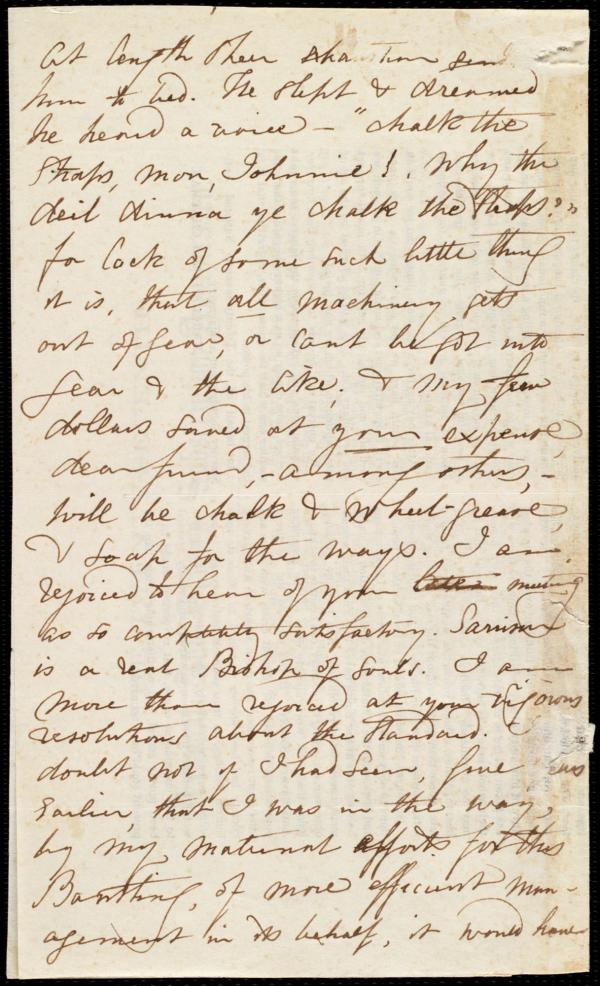 At length sheer exhaustion send
him to bed. He slept & dreamed
he heard a voice – "chalk the
straps, mon, Johnnie! Why the
deil dinna ye chalk the straps?"
for lack of some such little thing
it is, that all machinery gets
out of gear, or cant be got into
gear & the like; & my few
dollars saved at your expense,
dear friend, – among others, –
will be chalk & wheel-grease,
& soap for the ways. I am
rejoiced to hear of your meeting
as so completely satisfactory.
is a real Bishop of Souls. I am
more than rejoiced at your vigorous
resolutions about the Standard. I
doubt not if I had seen, five
earlier, that I was in the way,
by my maternal efforts for this
Bantling, of more efficient man-
agement in its behalf, it would have